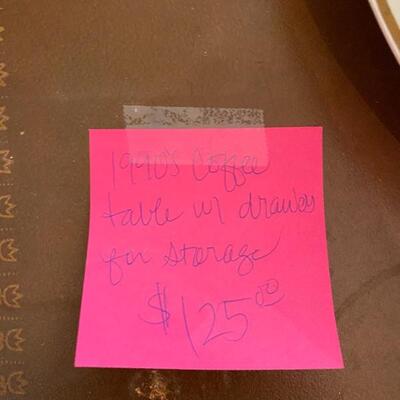 1990's Coffee
table w/ drawers
for storage
$125.00